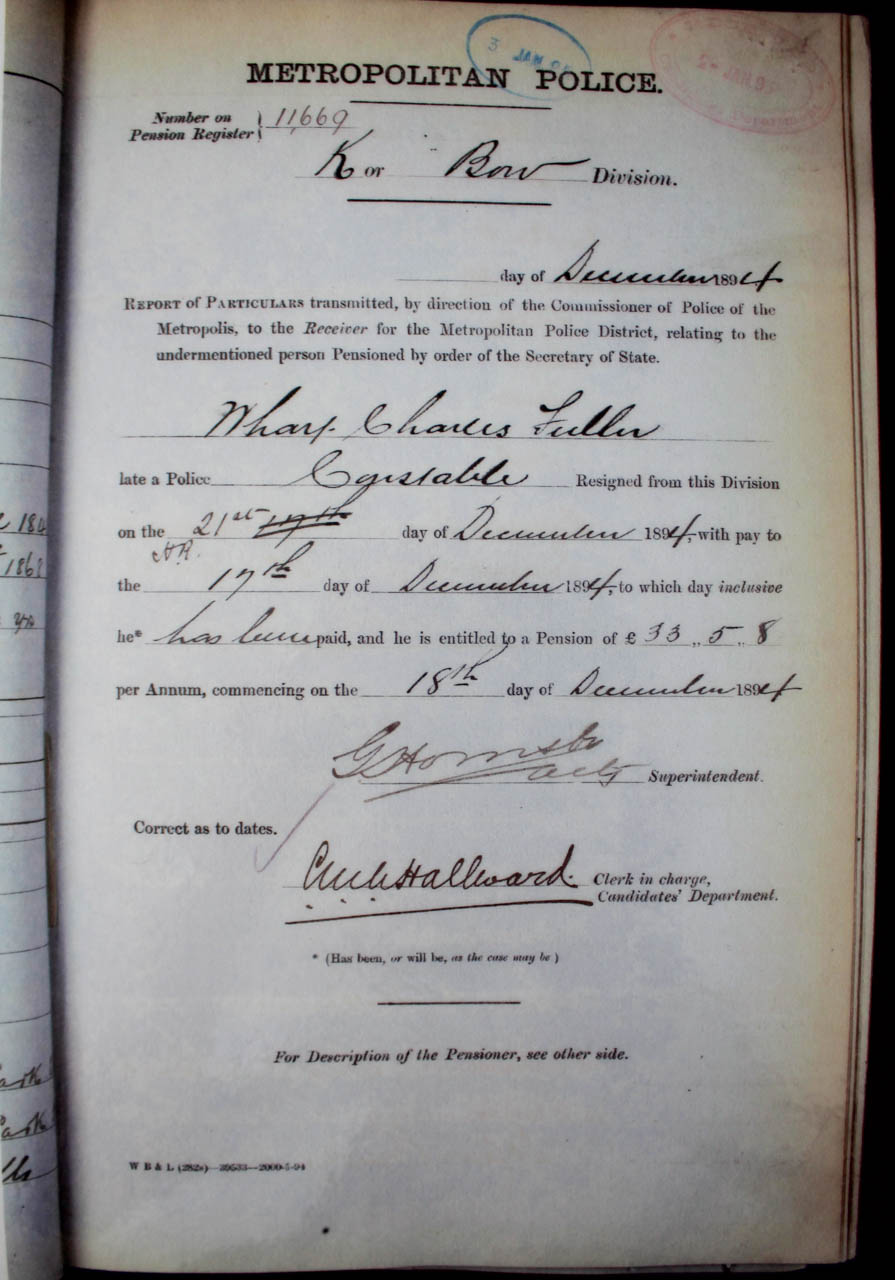 3 JAN 95
2 - JAN. 95
METROPOLITAN POLICE.
Number on Pension Register 11,669
K or Bow Division.
day of December 1894
REPORT of PARTICULARS transmitted, by direction of the Commissioner of Police of the
Metropolis, to the Receiver for the Metropolitan Police District, relating to the
undermentioned person Pensioned by order of the Secretary of State.
Wharf. Charles Fuller
late a Police Constable Resigned from this Division
on the 21st 17th day of December 1894, with pay to
the 17th day of December 1894, to which day inclusive
he* has been paid, and he is entitled to a Pension of £ 33 ,, 5 ,, 8
per Annum, commencing on the 18th day of December 1894
G Hornsby
actg Superintendent.
Correct as to dates.
Hallward. Clerk in charge,
Candidates' Department.
* (Has been, or will be, as the case may be)
For Description of the Pensioner, see other side.
W B & L (282s)—39533—2000-5-94
1868
yrs
Park